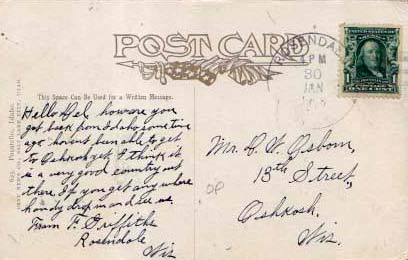 POST CARD
ROSENDAL
PM
30
JAN
1 ONE CENT 1
This Space Can Be Used for a Written Message.
Hello Del how are you
got back from Idaho sometime
ago havent been able to get
to Oshkosh yet. I think it
is a very good country out
there. If you get any where
handy drop in and see us,
From F. Griffiths
Rosendale
Wis
Mr. D. F. Osborn,
18th Street,
Oshkosh,
Wis.
Pocatello, Idaho.